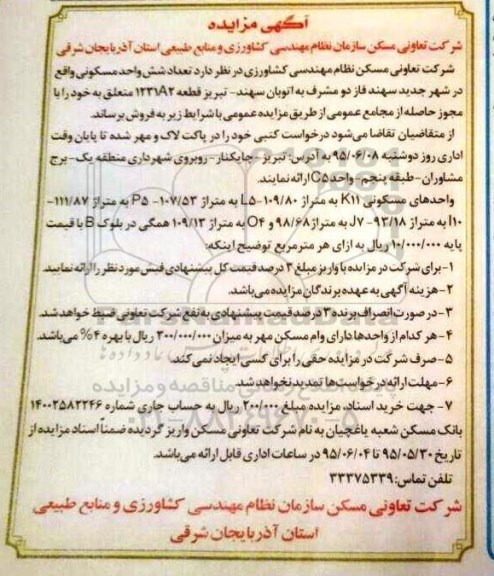 آگهی مزایده
شرکت تعاونی مسکن سازمان نظام مهندسی کشاورزی و منابع طبیعی استان آذربایجان شرقی
شرکت تعاونی مسکن نظام مهندسی کشاورزی در نظر دارد تعداد شش واحد مسکونی واقع
در شهر جدید سهند فاز دو مشرف به اتوبان سهند- تبریز قطعه ۱۲۳۱A۲ متعلق به خود را با
مجوز حاصله از مجامع عمومی از طریق مزایده عمومی با شرایط زیر به فروش برساند.
از متقاضیان تقاضا می‌شود درخواست کتبی خود را در پاکت لاک و مهر شده تا پایان وقت
اداری روز دوشنبه ۹۵/۰۶/۰۸ به آدرس: تبریز- چایکنار- روبروی شهرداری منطقه یک- برج
مشاوران- طبقه پنجم- واحد C۵ ارائه نمایند.
واحدهای مسکونی K۱۱ به متراژ ۱۰۹/۸۰- L۵ به متراژ ۱۰۷/۵۳- P۵ به متراژ ۱۱۱/۸۷-
I۱۰ به متراژ ۹۳/۱۸- J۷ به متراژ ۹۸/۶۸ و O۴ به متراژ ۱۰۹/۱۳ همگی در بلوک B با قیمت
پایه ۱۰/۰۰۰/۰۰۰ ریال به ازای هر متر مربع توضیح اینکه:
۱- برای شرکت در مزایده با واریز مبلغ ۳ درصد قیمت کل پیشنهادی فیش مورد نظر را ارائه نمایید.
۲- هزینه آگهی به عهده برندگان مزایده می‌باشد.
۳- در صورت انصراف برنده ۳ درصد قیمت پیشنهادی به نفع شرکت تعاونی ضبط خواهد شد.
۴- هر کدام از واحدها دارای وام مسکن مهر به میزان ۳۰۰/۰۰۰/۰۰۰ ریال با بهره ۴% می‌باشد.
۵- صرف شرکت در مزایده حقی را برای کسی ایجاد نمی‌کند.
۶- مهلت ارائه درخواست‌ها تمدید نخواهد شد.
۷- جهت خرید اسناد، مزایده مبلغ ۲۰۰/۰۰۰ ریال به حساب جاری شماره ۱۴۰۰۲۵۸۲۲۴۶
بانک مسکن شعبه باغچیان به نام شرکت تعاونی مسکن واریز گردیده ضمنا اسناد مزایده از
تاریخ ۹۵/۰۵/۳۰ تا ۹۵/۰۶/۰۴ در ساعات اداری قابل ارائه می‌باشد.
تلفن تماس: ۳۳۳۷۵۳۳۹
شرکت تعاونی مسکن سازمان نظام مهندسی کشاورزی و منابع طبیعی
استان آذربایجان شرقی